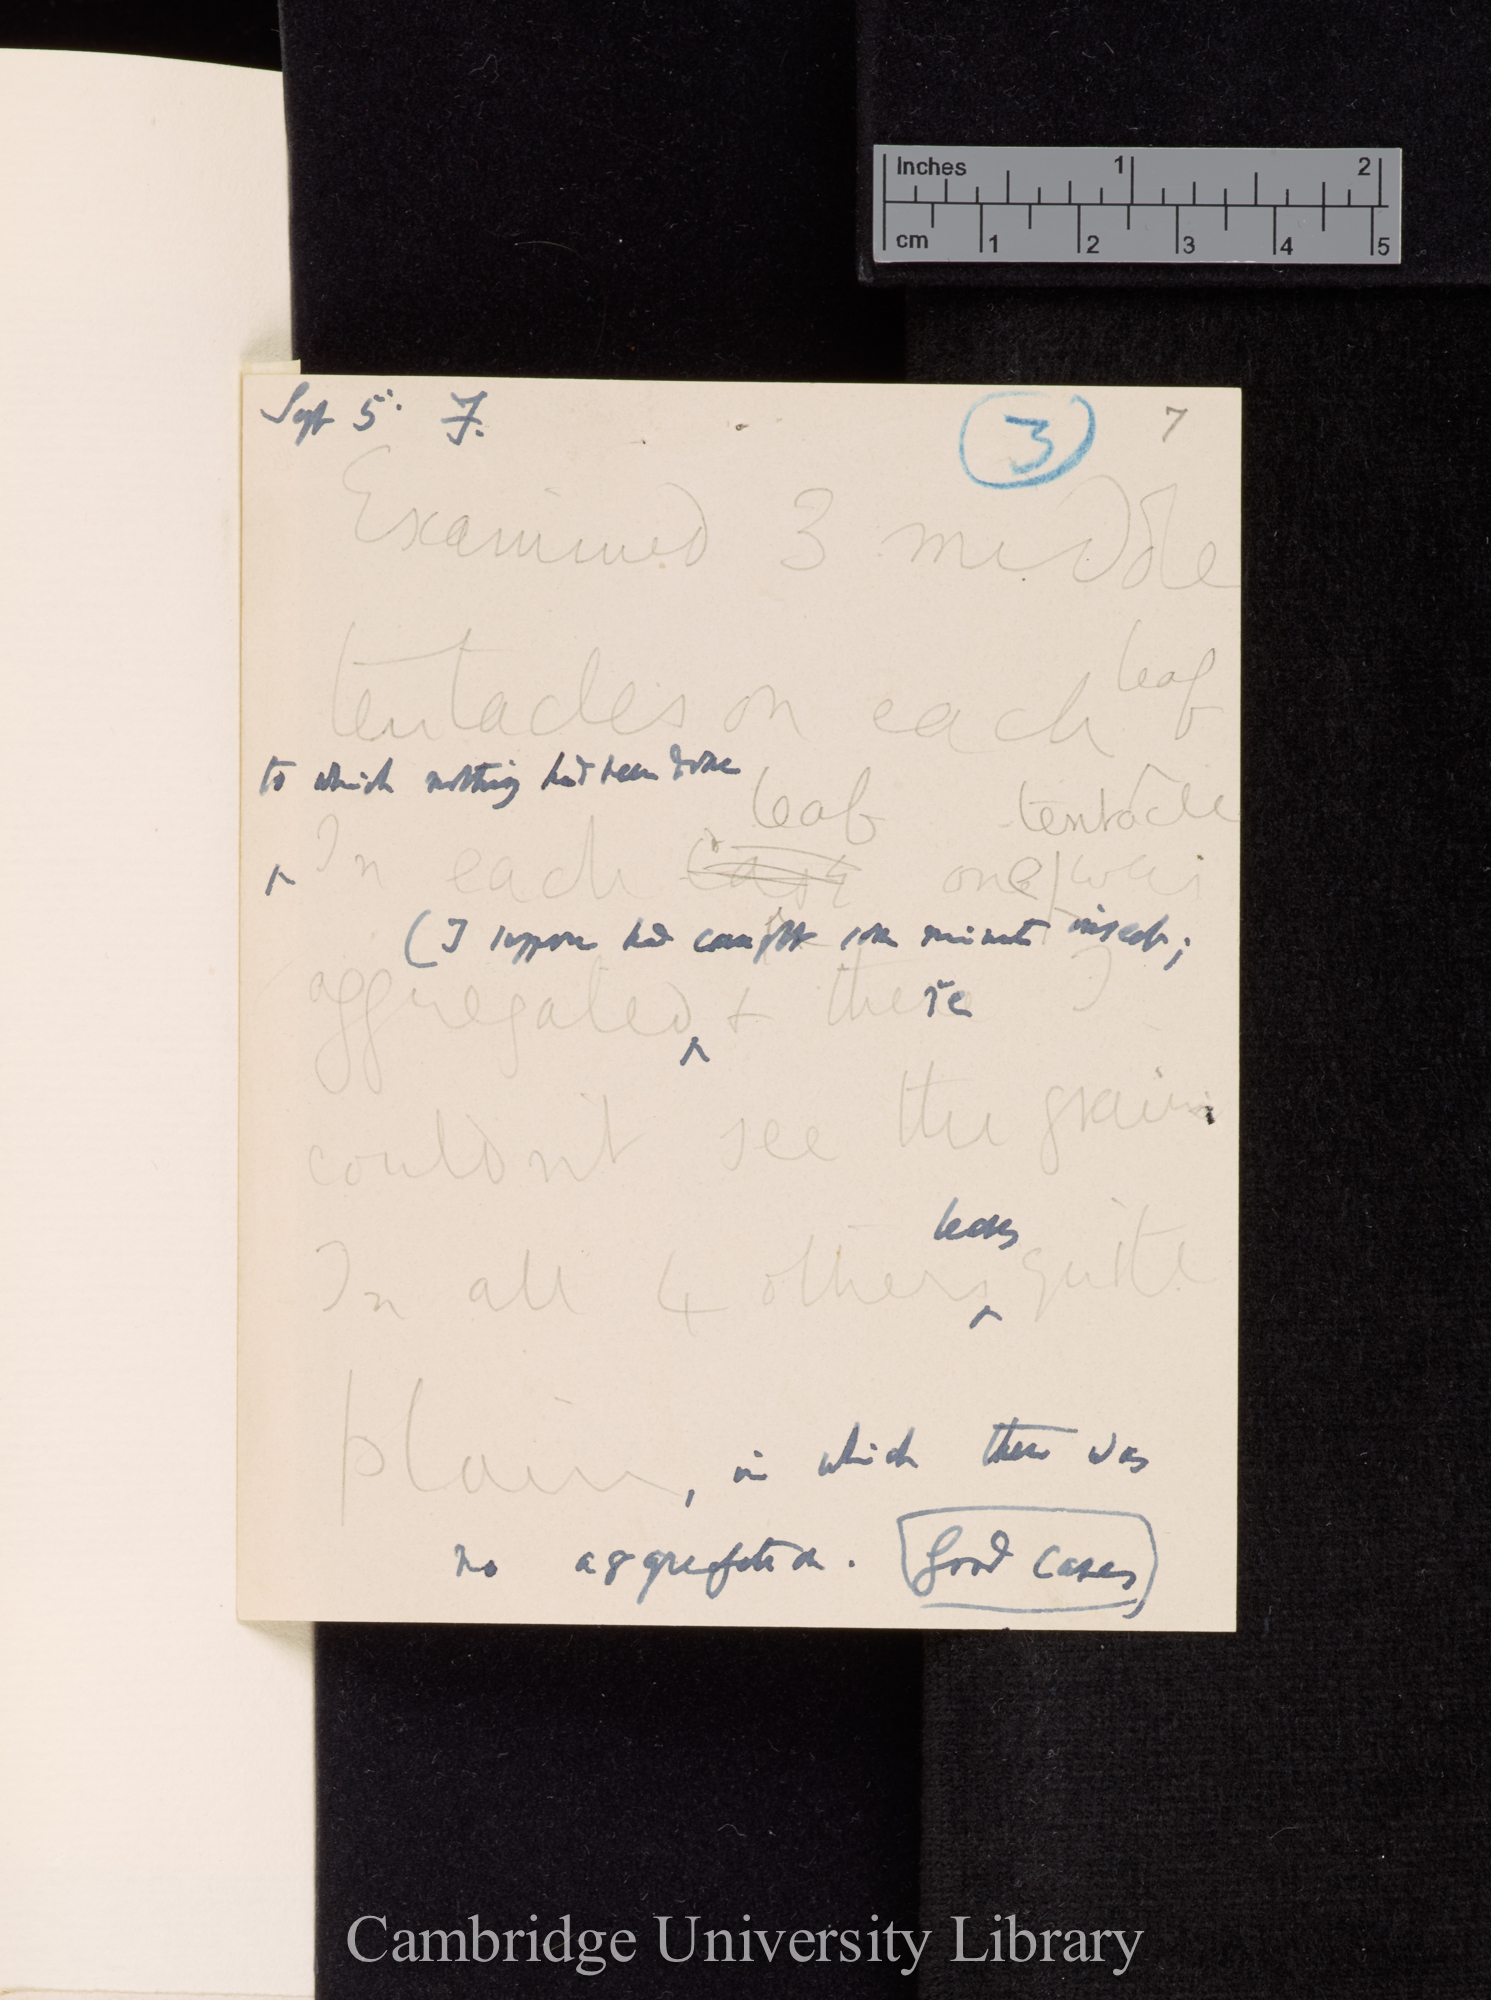 Inches 1 2
cm 1 2 3 4 5
Sept 5. F. 3 7
Examined 3 middle
tentacles on each leaf
to which nothing had been done
leaf tentacle
In each case one was
(I suppose had caught some minute insect;
aggregated & these I
couldn't see the grains
leaves
In all 4 others quite
plain, in which there was
no aggregation. Good Cases
Cambridge University Library